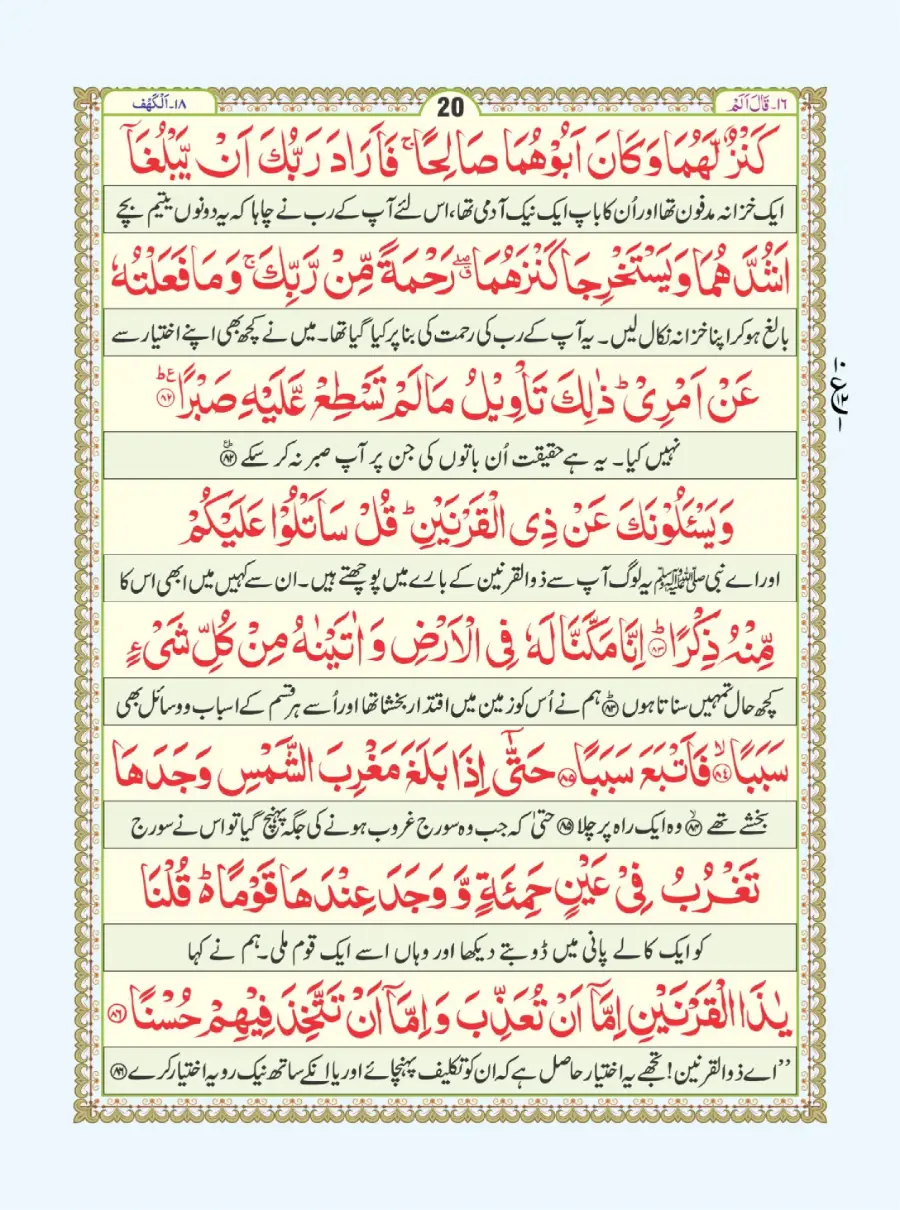 ١٦۔ قَالَ اَلَمْ
20
١٨۔ اَلْكَهْف
كَنْزٌ لَّهُمَا وَكَانَ اَبُوْهُمَا صَالِحًا ۚ فَاَرَادَ رَبُّكَ اَنْ يَّبْلُغَاۤ
ایک خزانہ مدفون تھا اور اُن کا باپ ایک نیک آدمی تھا، اس لئے آپ کے رب نے چاہا کہ یہ دونوں یتیم بچے
اَشُدَّهُمَا وَيَسْتَخْرِجَا كَنْزَهُمَا ۖۗ رَحْمَةً مِّنْ رَّبِّكَ ۚ وَمَا فَعَلْتُهٗ
بالغ ہو کر اپنا خزانہ نکال لیں۔ یہ آپ کے رب کی رحمت کی بنا پر کیا گیا تھا۔ میں نے کچھ بھی اپنے اختیار سے
عَنْ اَمْرِىْ ؕ ذٰلِكَ تَاْوِيْلُ مَا لَمْ تَسْطِعْ عَّلَيْهِ صَبْرًا ؕ ع ﴿٨٢﴾
نہیں کیا۔ یہ ہے حقیقت اُن باتوں کی جن پر آپ صبر نہ کر سکے ﴿۸۲﴾
وَيَسْـَٔلُوْنَكَ عَنْ ذِى الْقَرْنَيْنِ ؕ قُلْ سَاَتْلُوْا عَلَيْكُمْ
اور اے نبی ﷺ یہ لوگ آپ سے ذوالقرنین کے بارے میں پوچھتے ہیں۔ ان سے کہیں میں ابھی اس کا
مِّنْهُ ذِكْرًا ؕ ﴿٨٣﴾ اِنَّا مَكَّنَّا لَهٗ فِى الْاَرْضِ وَاٰتَيْنٰهُ مِنْ كُلِّ شَىْءٍ
کچھ حال تمہیں سناتا ہوں ﴿۸۳﴾ ہم نے اُس کو زمین میں اقتدار بخشا تھا اور اُسے ہر قسم کے اسباب و وسائل بھی
سَبَبًا ۙ ﴿٨٤﴾ فَاَتْبَعَ سَبَبًا ﴿٨٥﴾ حَتّٰٓى اِذَا بَلَغَ مَغْرِبَ الشَّمْسِ وَجَدَهَا
بخشے تھے ﴿۸۴﴾ وہ ایک راہ پر چلا ﴿۸۵﴾ حتیٰ کہ جب وہ سورج غروب ہونے کی جگہ پہنچ گیا تو اس نے سورج
تَغْرُبُ فِىْ عَيْنٍ حَمِئَةٍ وَّ وَجَدَ عِنْدَهَا قَوْمًا ؕ۬ قُلْنَا
کو ایک کالے پانی میں ڈوبتے دیکھا اور وہاں اسے ایک قوم ملی۔ ہم نے کہا
يٰذَا الْقَرْنَيْنِ اِمَّاۤ اَنْ تُعَذِّبَ وَاِمَّاۤ اَنْ تَتَّخِذَ فِيْهِمْ حُسْنًا ﴿٨٦﴾
”اے ذوالقرنین! تجھے یہ اختیار حاصل ہے کہ ان کو تکلیف پہنچائے اور یا انکے ساتھ نیک رویہ اختیار کرے ﴿۸۶﴾